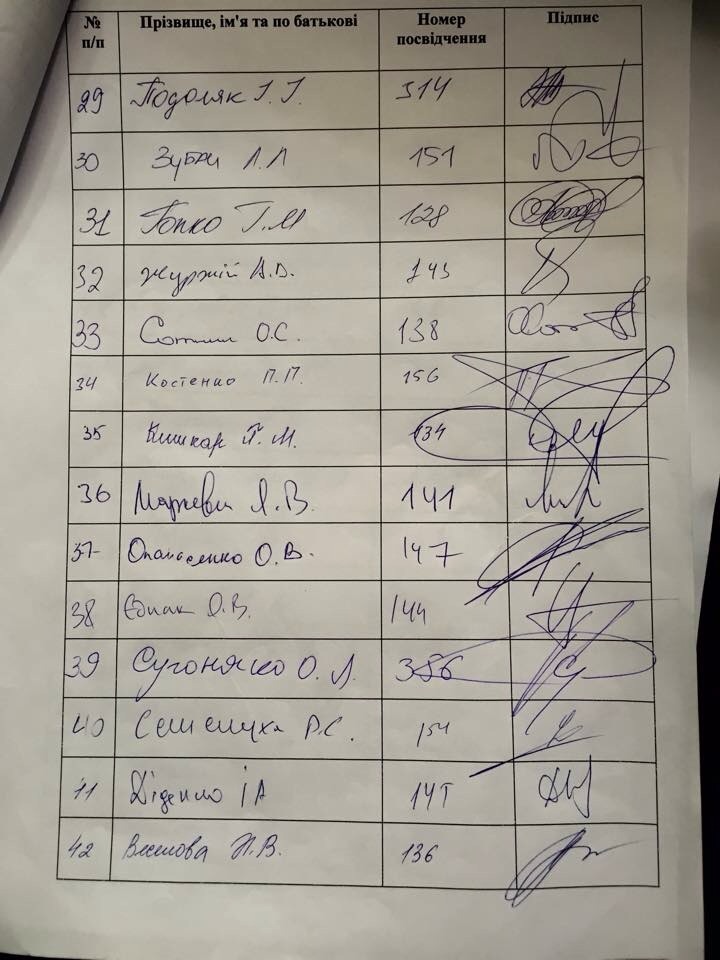 № п/п Прізвище, ім'я та по батькові Номер посвідчення Підпис
29 Подоляк І. І. 314
30 Зубач Л. Л 151
31 Гопко Г. М 128
32 Журжій А. В. 143
33 Сотник О.С. 138
34 Костенко П.П. 156
35 Кишкар П. М. 134
36 Маркевич Я. В. 141
37 Опанасенко О. В. 147
38 Єднак О. В. 144
39 Сугоняко О. Л. 356
40 Семенуха Р. С. 154
41 Діденко І А
42 Веселова Н. В. 136